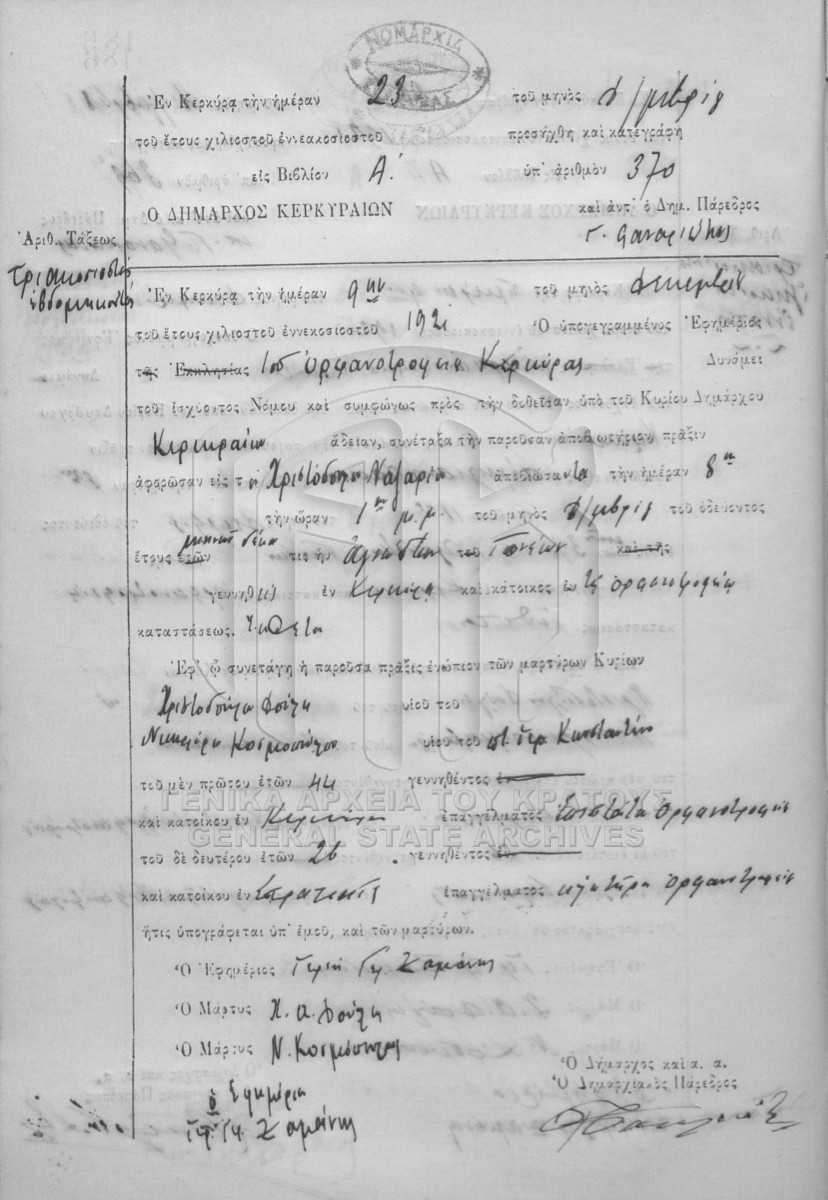 ΝΟΜΑΡΧΙΑ
Ἐν Κερκύρᾳ τὴν ἡμέραν 23 τοῦ μηνὸς
τοῦ ἔτους χιλιοστοῦ ἐννεακοσιοστοῦ προσήχθη καὶ κατεγράφη
εἰς Βιβλίον Α! ὑπ' ἀριθμὸν 370
Ο ΔΗΜΑΡΧΟΣ ΚΕΡΚΥΡΑΙΩΝ καὶ ἀντ' ὁ Δημ. Πάρεδρος
Ἀριθ. Τάξεως
τριακοσιοστὸς
ἑβδομηκοστὸς
Ἐν Κερκύρᾳ τὴν ἡμέραν 9ην τοῦ μηνὸς
τοῦ ἔτους χιλιοστοῦ ἐννεκοσιοστοῦ 1921 Ὁ ὑπογεγραμμένος Ἐφημέριος
τῆς Ἐκκλησίας τοῦ Ὀρφανοτροφείου Κερκύρας Δυνάμει
τοῦ ἰσχύοντος Νόμου καὶ συμφώνως πρὸς τὴν δοθεῖσαν ὑπὸ τοῦ Κυρίου Δημάρχου
Κερκυραίων ἄδειαν, συνέταξα τὴν παροῦσαν ἀποβιωτήριον πρᾶξιν
ἀφορῶσαν εἰς τ Χριστόδουλο ἀποβιώσαντα τὴν ἡμέραν 8ην
τὴν ὥραν 1ην μ.μ. τοῦ μηνὸς τοῦ ὁδεύοντος
ἔτους ἐτῶν μηνῶν δέκα τις ἦν ἀγνώστων τοῦ Γονέων καὶ τῆς
γεννηθ ἐν Κερκύρᾳ καὶ κάτοικος ἐν τῷ ὀρφανοτροφείῳ
καταστάσεως. Ἔκθετο
Ἐφ' ᾧ συνετάγη ἡ παροῦσα πρᾶξις ἐνώπιον τῶν μαρτύρων Κυρίων
Χριστοδούλου Δούλη υἱοῦ τοῦ
υἱοῦ τοῦ Κωνσταντίνου
τοῦ μὲν πρώτου ἐτῶν 44 γεννηθέντος ἐν
καὶ κατοίκου ἐν Κερκύρᾳ ἐπαγγέλματος Ἐπιστάτου Ὀρφανοτροφείου
τοῦ δὲ δευτέρου ἐτῶν 26 γεννηθέντος ἐν
καὶ κατοίκου ἐν ἐπαγγέλματος κλητῆρος ὀρφανοτροφείου
ἥτις ὑπογράφεται ὑπ' ἐμοῦ, καὶ τῶν μαρτύρων.
Ὁ Ἐφημέριος
Ὁ Μάρτυς Χ. Α. Δούλης
Ὁ Μάρτυς Ν. Κοσμόπουλος
Ὁ Δήμαρχος καὶ α. α.
Ὁ Δημαρχιακὸς Πάρεδρος
ὁ Ἐφημέριος
ΓΕΝΙΚΑ ΑΡΧΕΙΑ ΤΟΥ ΚΡΑΤΟΥΣ
GENERAL STATE ARCHIVES